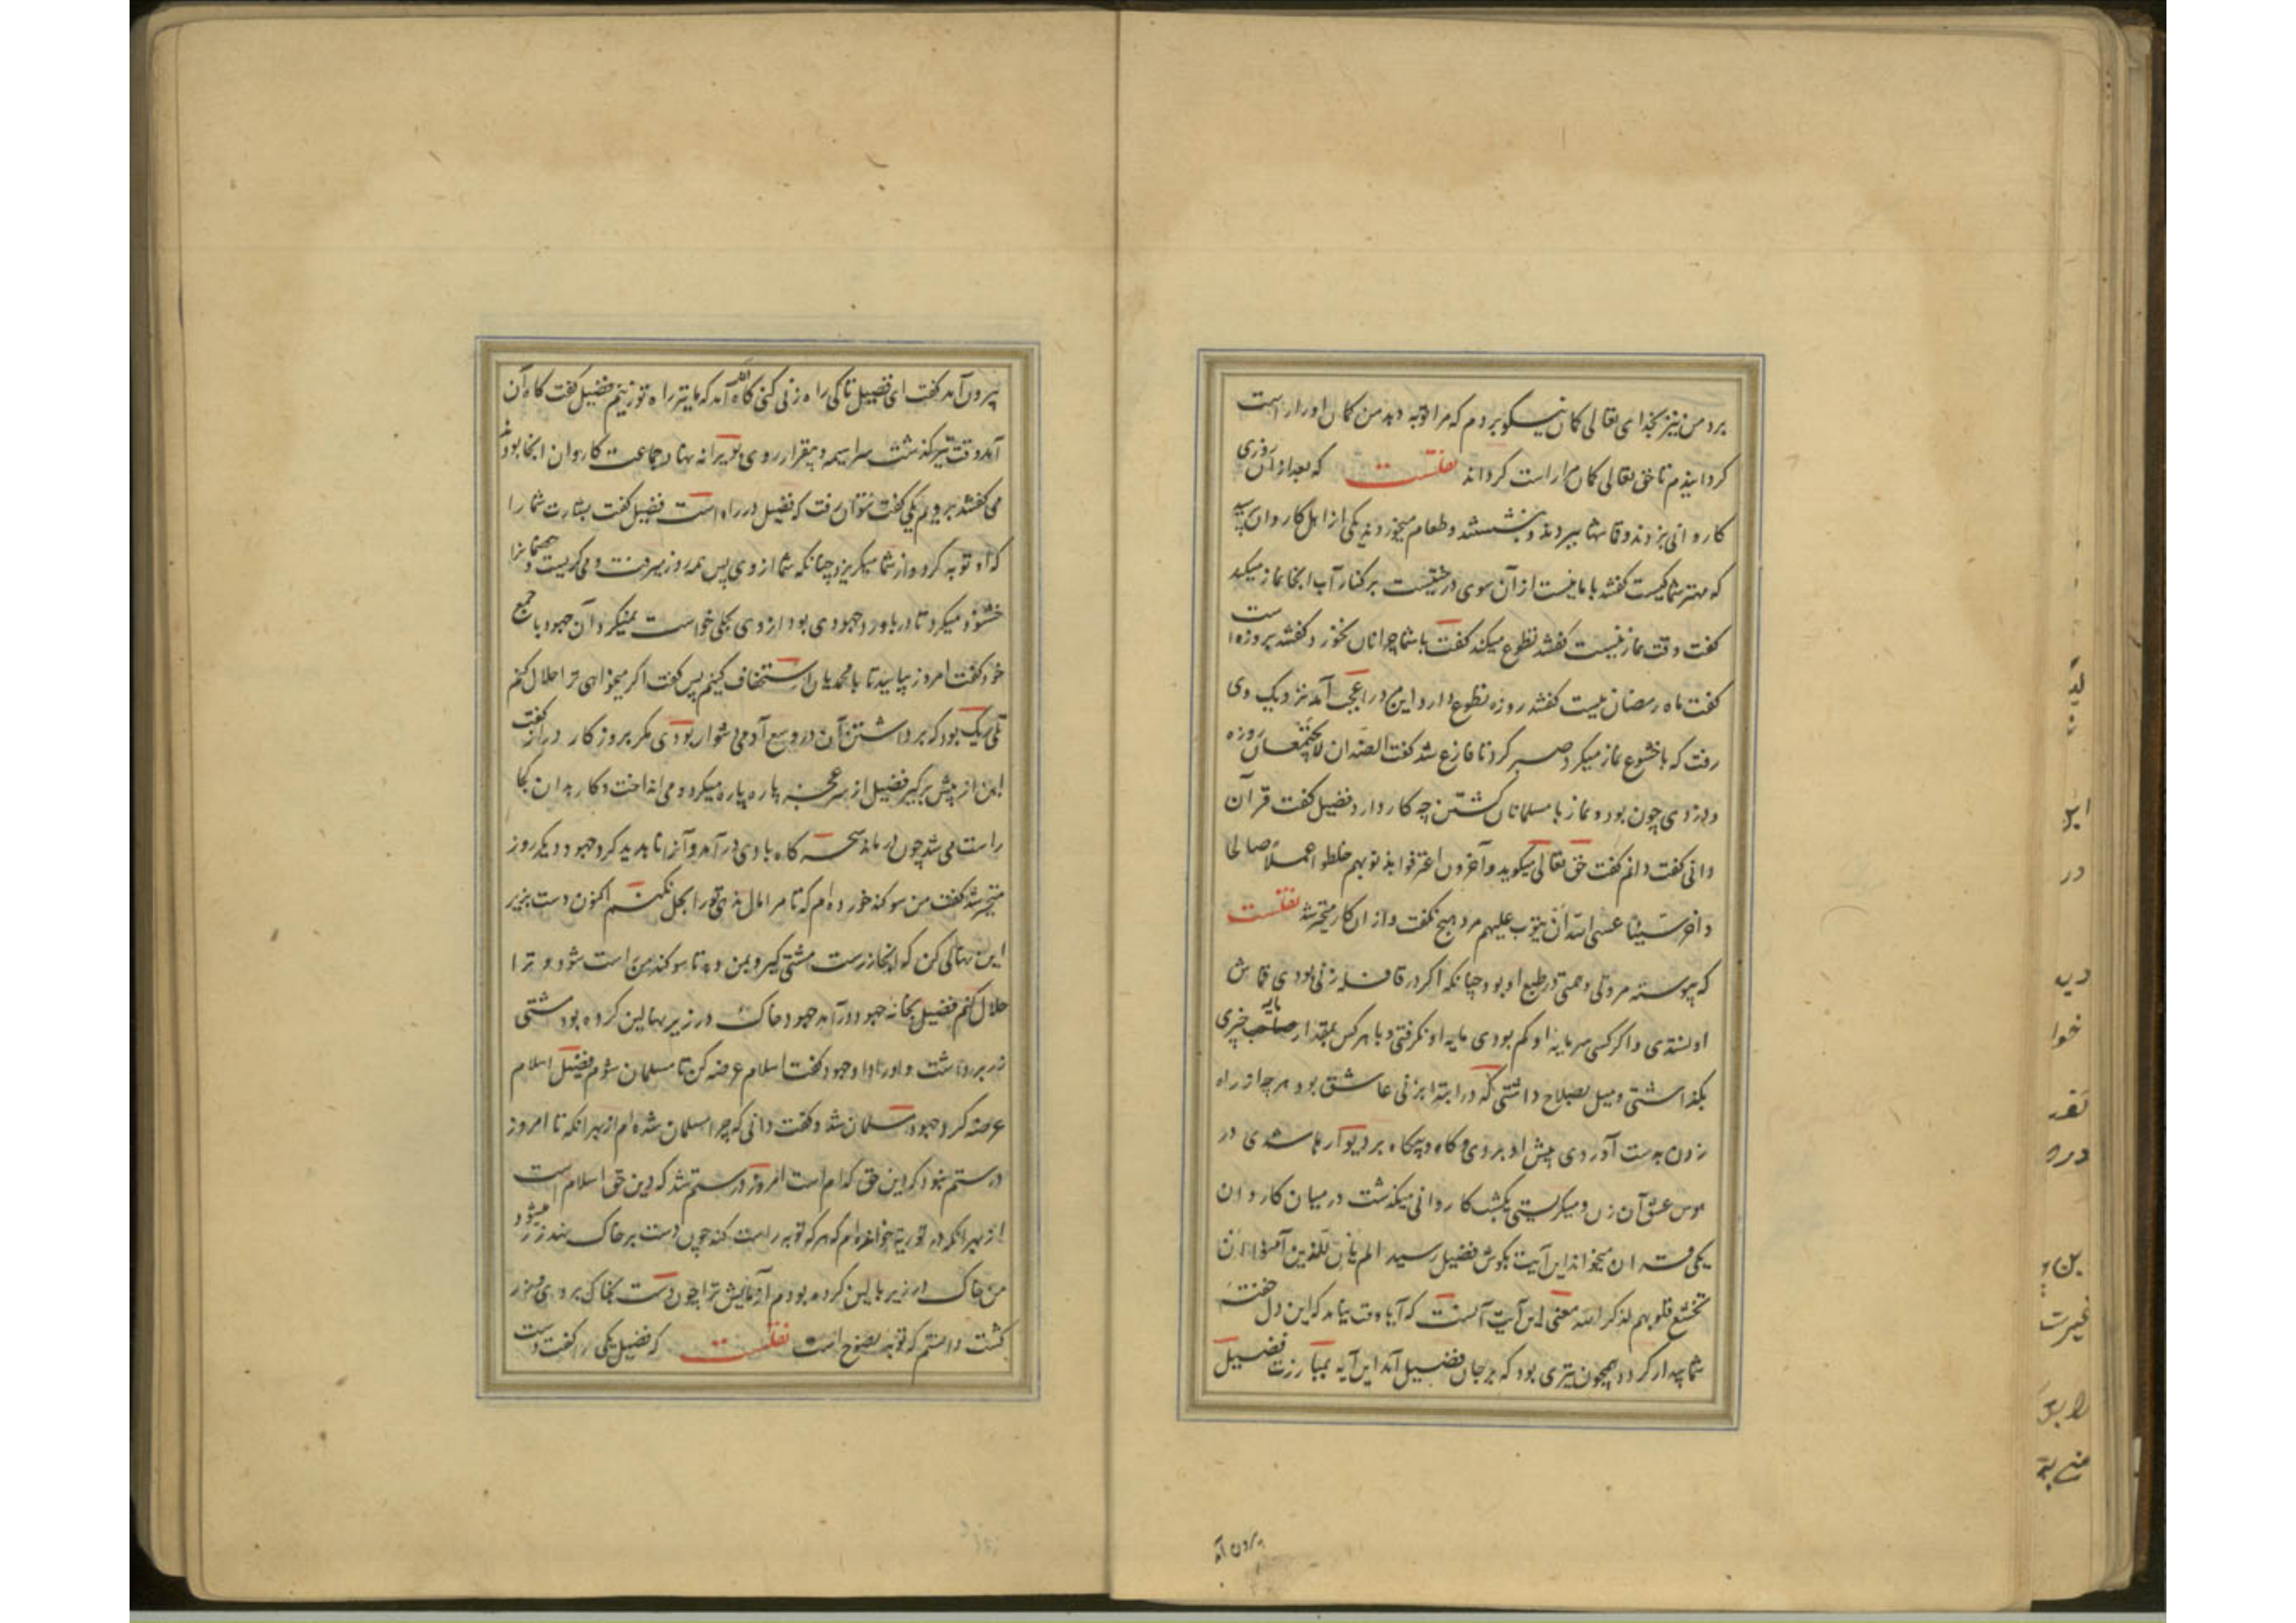 برد من نیز بخدای تعالی کمان نیکو بردم که مرا توبه دهد من کمان او را راست
کردانیدم تا حق تعالی کمان مرا راست کرداند نقلست که بعد از آن روزی
کاروانی بزدند و قماشها ببردند و بنشستند و طعام میخوردند یکی از اهل کاروان پرسید
که مهتر شما کیست کفتند با ما نیست از آن سوی درختیست بر کنار آب آنجا نماز میکند
کفت وقت نماز نیست کفتند تطوع میکند کفت با شما چرا نان نخورد کفتند بروزه است
کفت ماه رمضان نیست کفتند روزه تطوع دارد این مرد را عجب آمد نزدیک وی
رفت که با خشوع نماز میکرد صبر کرد تا فارغ شد کفت الضدان لا یجتمعان روزه
و دزدی چون بود و نماز با مسلمانان کشتن چه کار دارد فضیل کفت قرآن
دانی کفت دانم کفت حق تعالی میکوید و آخرون اعترفوا بذنوبهم خلطوا عملا صالحا
و آخر سیئا عسی الله ان یتوب علیهم مرد هیچ نکفت و از ان کار متحیر شد نقلست
که پیوسته مروتی و همتی در طبع او بود چنانکه اکر در قافله زنی بودی قماش
او نستدی و اکر کسی سرمایه او کم بودی مایه او نکرفتی و با هر کس بمقدار مایه چیزی
بکذاشتی و میل بصلاح داشتی که در ابتدا بر زنی عاشق بود هر چه از راه
زدن بدست آوردی پیش او بردی و کاه و بیکاه بر دیوارها شدی در
هوس عشق آن زن و میکریستی یکشب کاروانی میکذشت در میان کاروان
یکی قرآن میخواند این آیت بکوش فضیل رسید الم یان للذین آمنوا ان
تخشع قلوبهم لذکر الله معنی این آیت آنست که آیا وقت نیامد که این دل خفته
شما بیدار کردد همچون تیری بود که بر جان فضیل آمد این آیه بمبارزت فضیل
برون آمد
بیرون آمد کفت ای فضیل تا کی راه زنی کنی کاه آن آمد که ما نیز راه تو زنیم فضیل کفت کاه آن
آمد وقت نیز کذشت سراسیمه و بیقرار روی بویرانه نهاد جماعت کاروان آنجا بود
می کفتند برویم یکی کفت نتوان رفت که فضیل در راه است فضیل کفت بشارت شما را
که او توبه کرد و از شما میکریزد چنانکه شما از وی پس همه روز میرفت و می کریست و خصمانرا
خشنود میکرد تا در باورد جهودی بود از وی بحلی خواست نمیکرد آن جهود با جمع
خود کفت امروز بیایید تا با محمدیان استخفاف کنیم پس کفت اکر میخواهی ترا حلال کنم
تلی ریک بود که برداشتن آن در وسع آدمی دشوار بودی مکر بروزکار دراز کفت
این از پیش برکیر فضیل از سر عجز پاره پاره میکرد و می انداخت و کار بدان کجا
راست می شد چون در ماند سحر کاه بادی در آمد و آنرا ناپدید کرد جهود دیکر روز
متحیر شد کفت من سوکند خورده ام که تا مرا مال ندهی تو را بحل نکنم اکنون دست بزیر
این نهالی کن که آنجا زرست مشتی کیر و بمن ده تا سوکند من راست شود و ترا
حلال کنم فضیل بخانه جهود در آمد جهود خاک در زیر نهالین کرده بود مشتی
زر برداشت و او را داد جهود کفت اسلام عرضه کن تا مسلمان شوم فضیل اسلام
عرضه کرد جهود مسلمان شد و کفت دانی که چرا مسلمان شده ام از بهر آنکه تا امروز
درستم نبود که دین حق کدام است امروز درستم شد که دین حق اسلام است
از بهر آنکه در توریة خوانده ام که هر که توبه راست کند چون دست بر خاک نهد زر میشود
من خاک در زیر نهالین کرده بودم آزمایش ترا چون دست بخاک بردی زر
کشت دانستم که توبه نصوح است نقلست که فضیل یکی را کفت